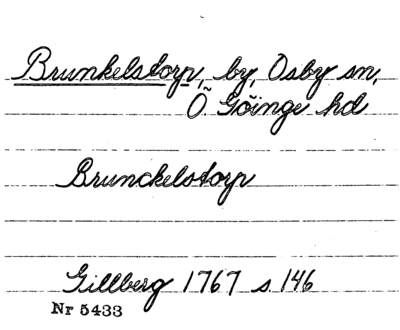 Brunkelstorp, by, Osby sn,
Ö. Göinge hd
Brunckelstorp
Gillberg 1767 s 146
Nr 5433